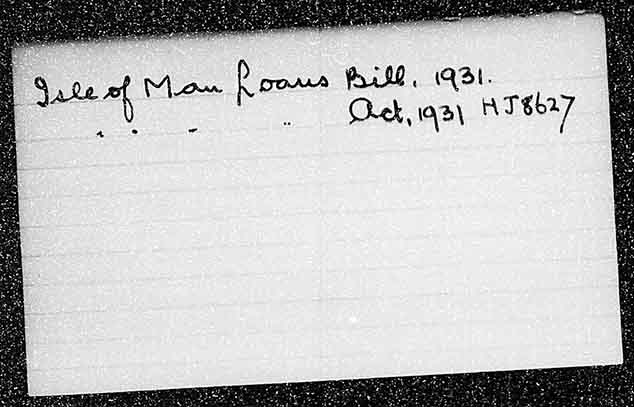 Isle of Man Loans Bill, 1931.
" " " " Act, 1931 HJ8627